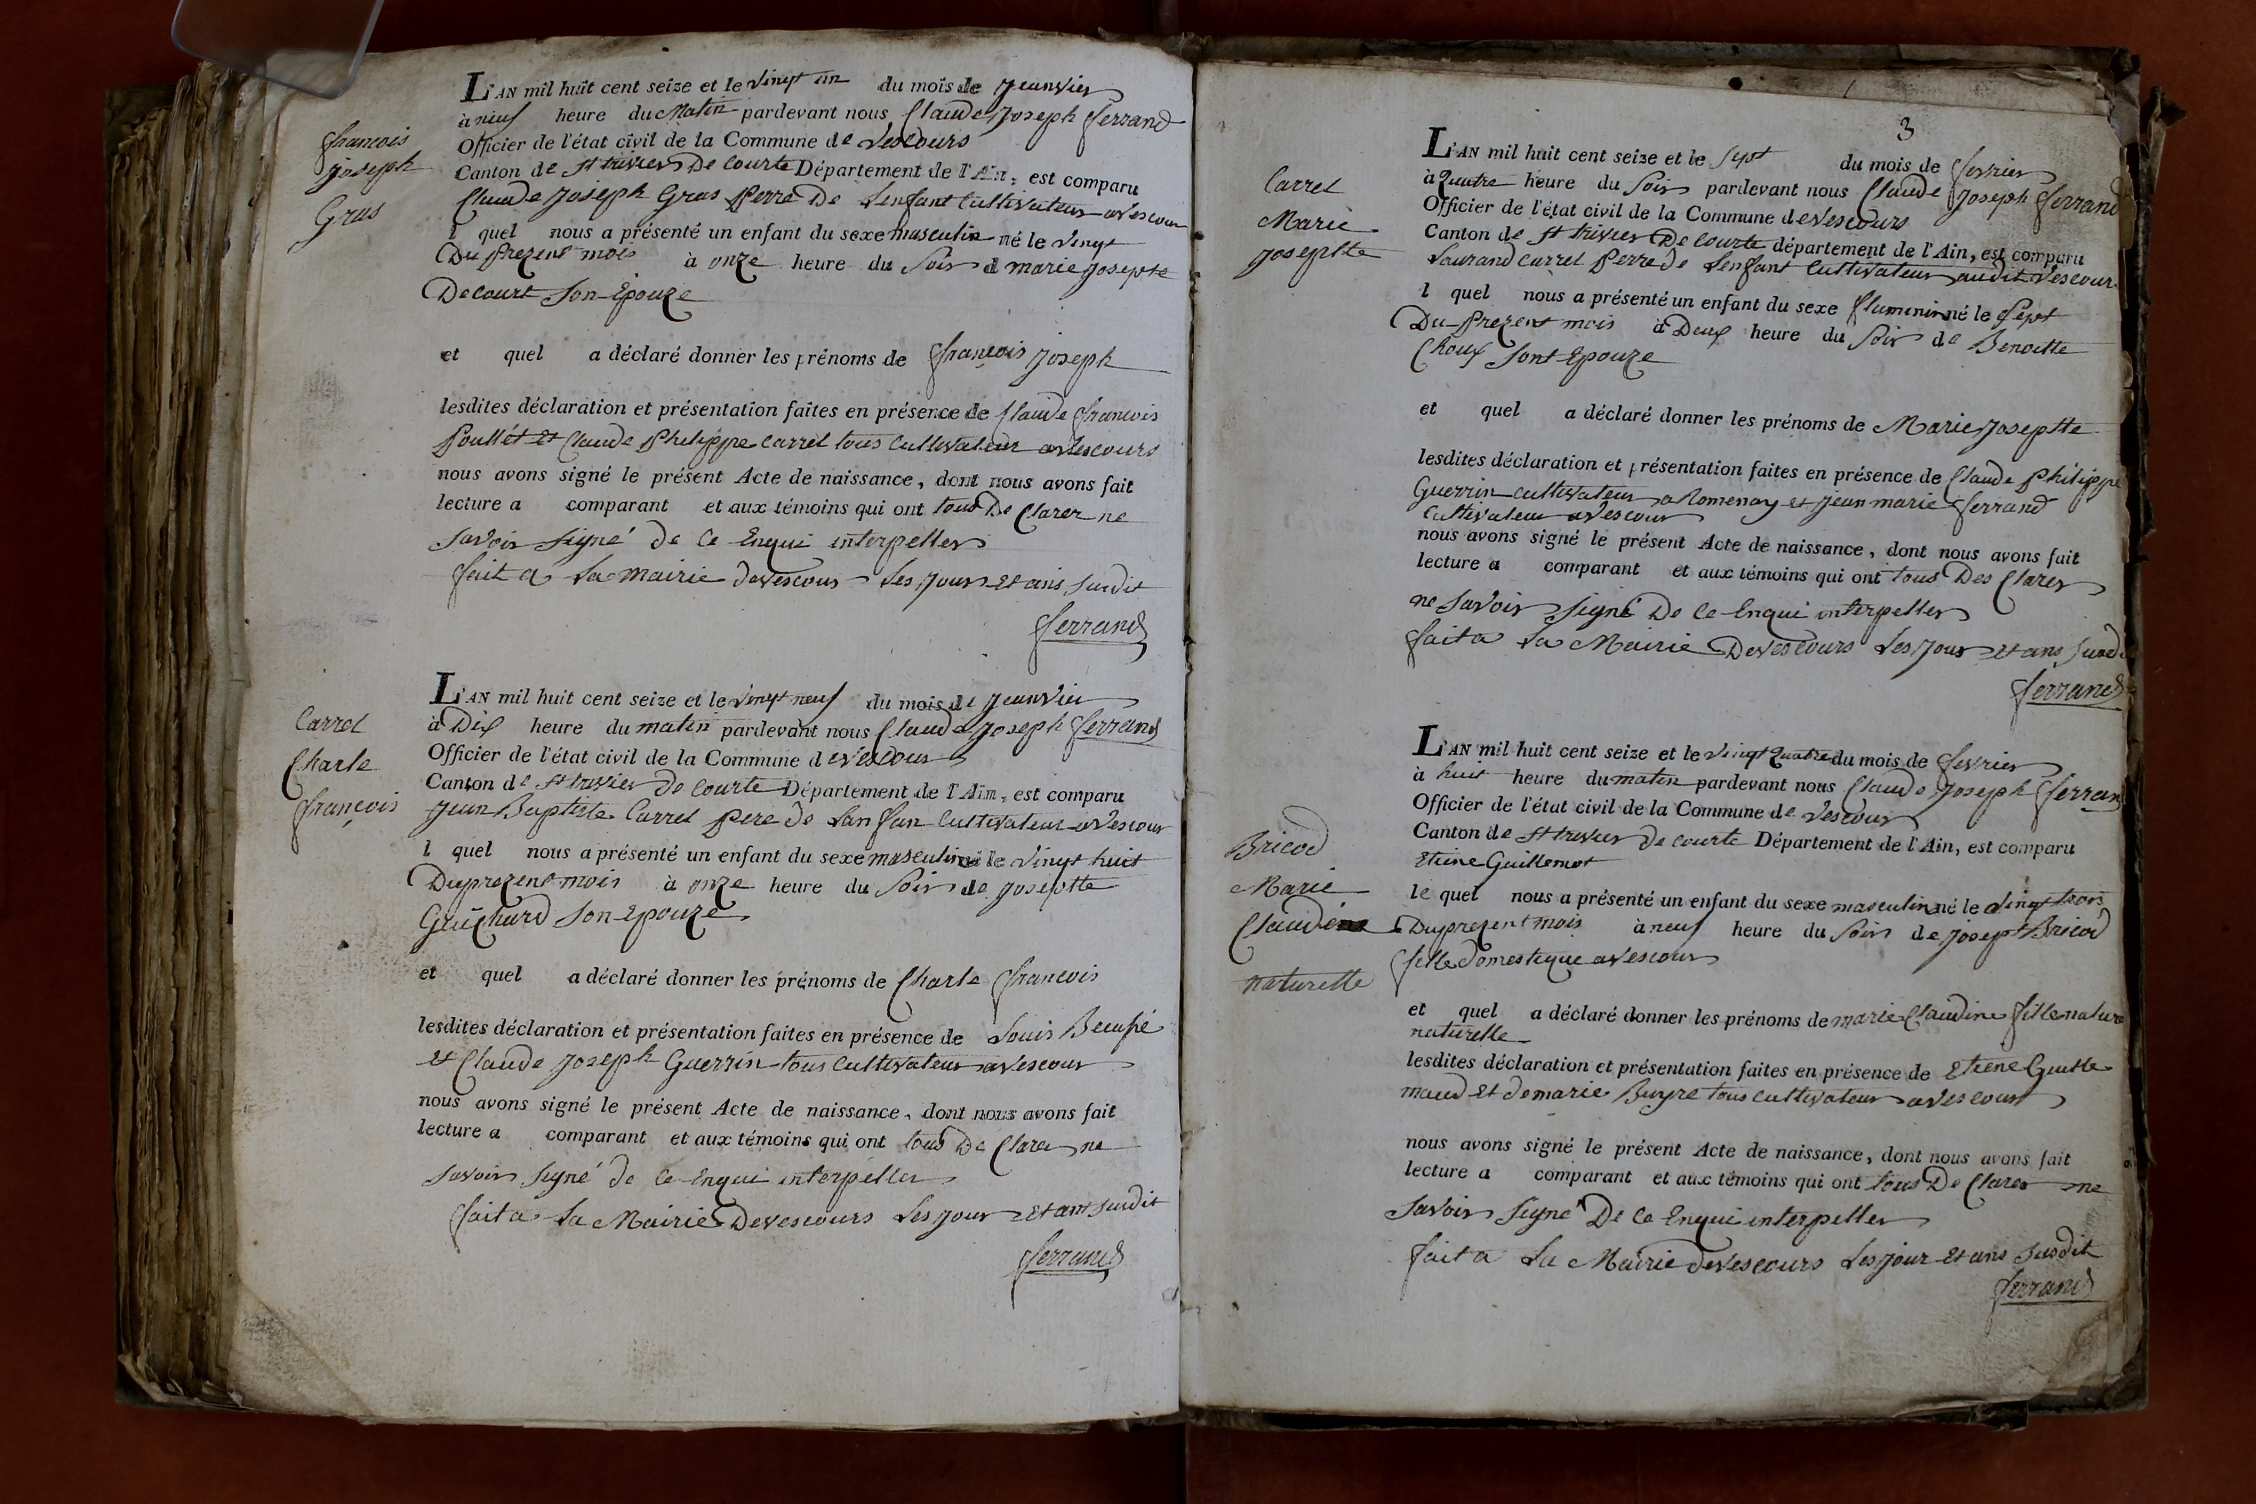 François
joseph
Gras
L'AN mil huit cent seize et le vingt un du mois de jeanvier
à neuf heure du Matin pardevant nous Claude joseph ferrand
Officier de l'état civil de la Commune de vescours
Canton de st trivier De Courte Département de l'Ain, est comparu
Claude joseph Gras perre De Lenfant Cultivateur a vescour
l quel nous a présenté un enfant du sexe masculin né le vingt
Du prezent mois à onze heure du soir d marie josepte
Decourt son Epouze
et quel a déclaré donner les prénoms de françois joseph
lesdites déclaration et présentation faites en présence de Claude francois
Poullet et Claude philippe Carrel tous Cultivateur a vescours
nous avons signé le présent Acte de naissance, dont nous avons fait
lecture a comparant et aux témoins qui ont tous De Clarer ne
savoir signé de ce Enqui interpeller
fait a La mairie de vescour Les jour et ans susdit
ferrand
Carrel
Charle
françois
L'AN mil huit cent seize et le vingt neuf du mois de jeanvier
à Dix heure du matin pardevant nous Claude joseph ferrand
Officier de l'état civil de la Commune d e vescour
Canton de st trivier De Courte Département de l'Ain, est comparu
jean Baptiste Carrel pere de Lan fan Cultivateur a vescour
l quel nous a présenté un enfant du sexe masculin né le vingt huit
Du prezent mois à onze heure du soir de joseptte
Guichard son Epouze
et quel a déclaré donner les prénoms de Charle francois
lesdites déclaration et présentation faites en présence de Louis
et Claude joseph Guerrin tous Cultivateur a vescour
nous avons signé le présent Acte de naissance, dont nous avons fait
lecture a comparant et aux témoins qui ont tous De Clarer ne
savoir signé de ce Enqui interpeller
fait a La Mairie De vescours Les jour et ans susdit
ferrand
3
Carrel
Marie
joseptte
L'AN mil huit cent seize et le sept du mois de fevrier
à quatre heure du soir pardevant nous Claude joseph ferrand
Officier de l'état civil de la Commune d e vescours
Canton de st trivier De Courte département de l'Ain, est comparu
Laurand Carrel perre de Lenfant Cultivateur audit vescour
l quel nous a présenté un enfant du sexe fluminin né le sept
Du prezent mois à Deux heure du soir de Benoitte
Choux sont Epouze
et quel a déclaré donner les prénoms de Marie joseptte
lesdites déclaration et présentation faites en présence de Claude philippe
Guerrin cultivateur a Romenay et jean marie ferrand
Cultivateur a vescour
nous avons signé le présent Acte de naissance, dont nous avons fait
lecture a comparant et aux témoins qui ont tous Des Clarer
ne savoir signé De ce Enqui interpeller
fait a La Mairie De vescours Les jour et ans susdit
ferrand
Bricod
Marie
Claudine
naturelle
L'AN mil huit cent seize et le vingt quatre du mois de fevrier
à huit heure du matin pardevant nous Claude joseph ferran
Officier de l'état civil de la Commune de vescour
Canton de st trivier De Courte Département de l'Ain, est comparu
Etiene Guillemot
le quel nous a présenté un enfant du sexe masculin né le vingt trois
Du prezent mois à neuf heure du soir de josept Bricod
fille domestique a vescour
et quel a déclaré donner les prénoms de marie Claudine fille nature
naturelle
lesdites déclaration et présentation faites en présence de Etiene Guille
maud et de marie Buyre tous cultivateur a vescour
nous avons signé le présent Acte de naissance, dont nous avons fait
lecture a comparant et aux témoins qui ont tous De Clarer ne
savoir signé De ce Enqui interpeller
fait a La Mairie de vescours Les jour et ans susdit
ferrand